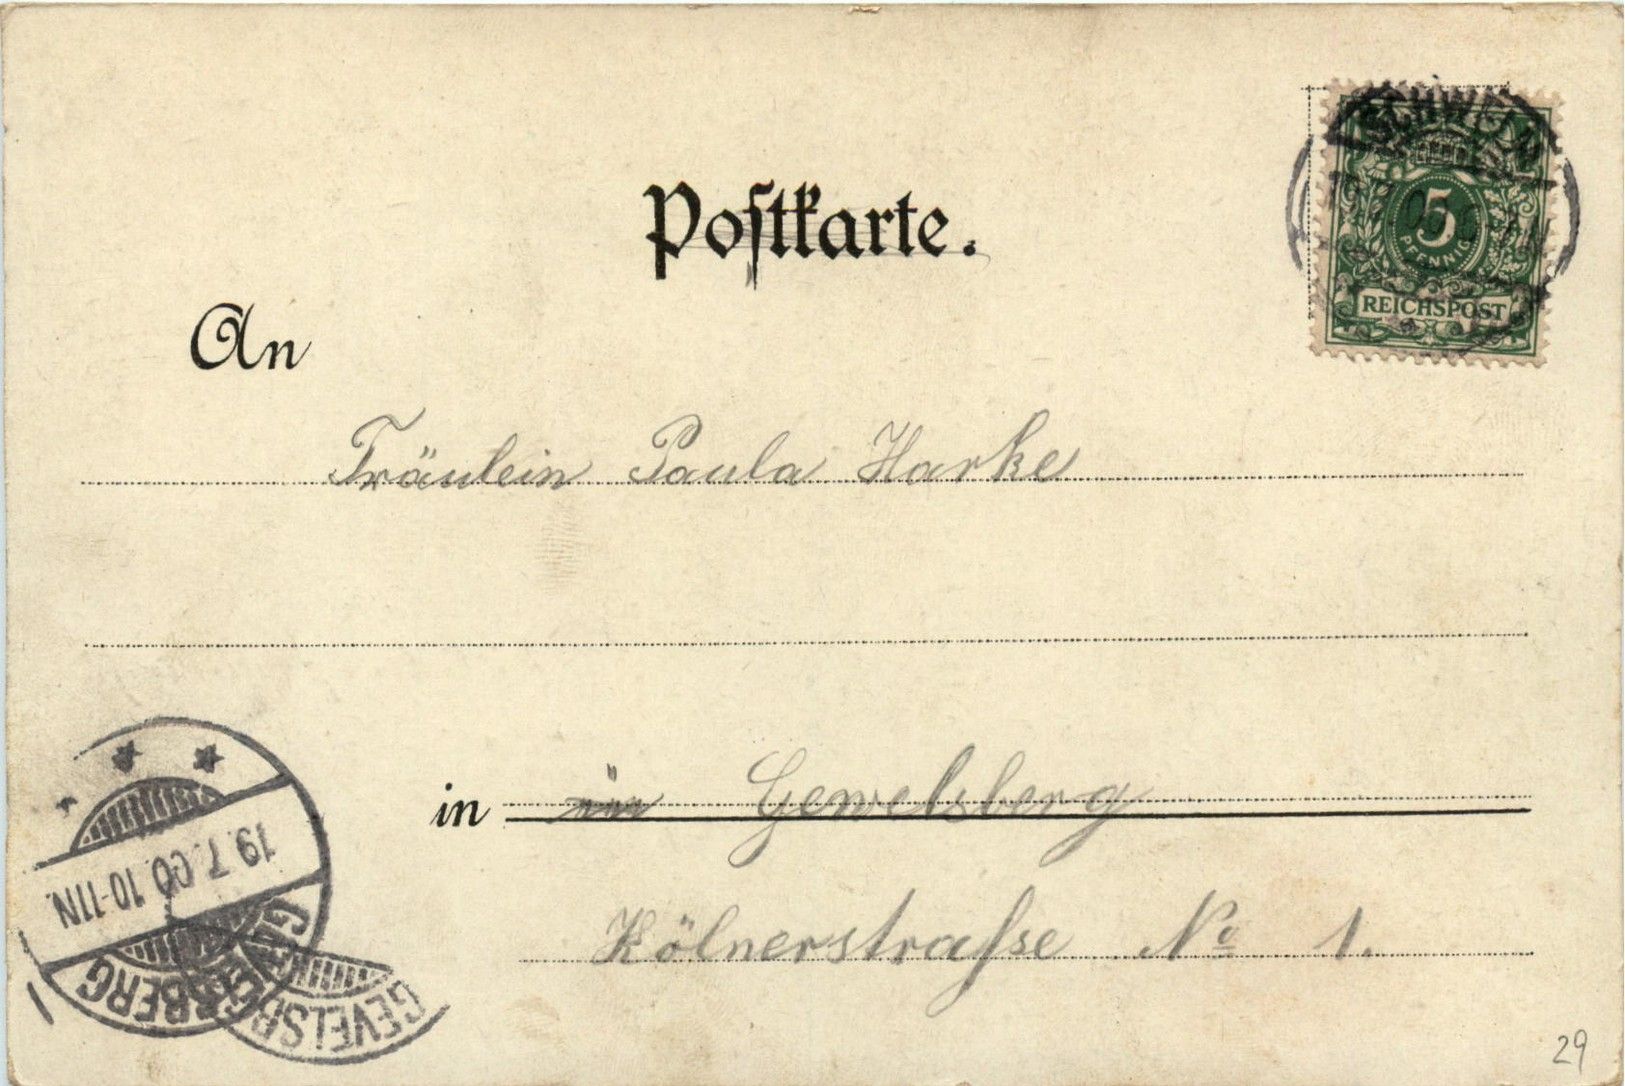 Postkarte.
SCHWELM
5
PFENNIG
REICHSPOST
An
Fräulein Paula Harke
in in Gewelsberg
Kölnerstraſse No 1.
GEVELSBERG
19.7.00.10-11N.
GEVELSBERG
29